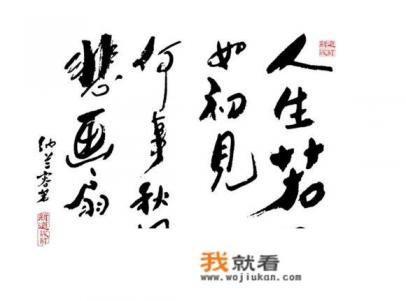 人生若
如初見
何事秋
悲画扇
纳兰容若
我就看
www.wojiukan.com